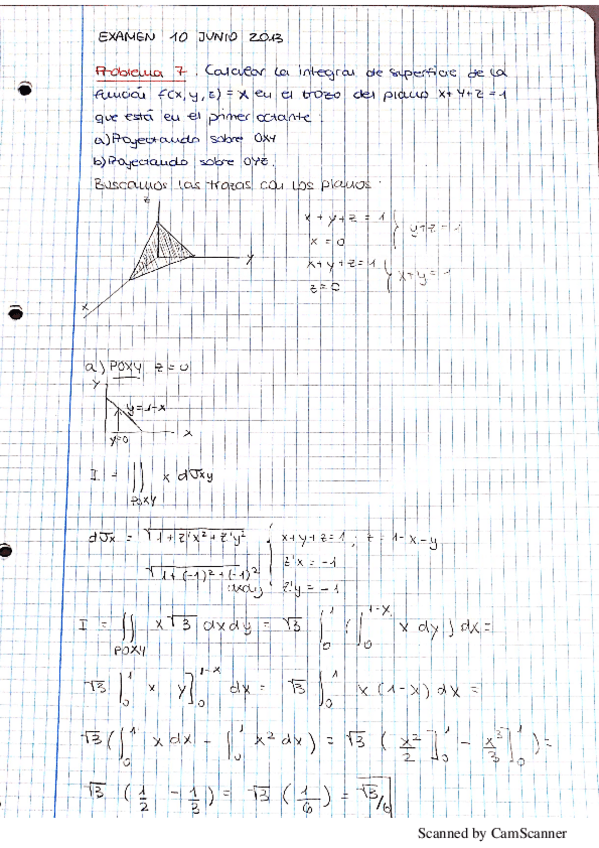 EXAMEN 10 JUNIO 2013
Problema 7. Calcular la integral de superficie de la
función f(x,y,z)=x en el trozo del plano x+y+z=1
que está en el primer octante:
a) Proyectando sobre OXY
b) Proyectando sobre OYZ.
Buscamos las trazas con los planos:
z
y
x
x+y+z=1
x=0
} y+z=1
x+y+z=1
z=0
} x+y=1
a) POXY z=0
y
y=1-x
y=0
x
I = ∬ x dσxy
POXY
= √1+z'x²+z'y² ; x+y+z=1 ; z=1-x-y
√1+(-1)²+(-1)² z'x=-1
dxdy z'y=-1
I = ∬ x√3 dxdy = √3 ∫₀¹ (∫₀^1-x x dy) dx =
POXY
√3 ∫₀¹ x y]₀^1-x dx = √3 ∫₀¹ x(1-x) dx =
√3 (∫₀¹ x dx - ∫₀¹ x² dx) = √3 (x²/2 ]₀¹ - x³/3 ]₀¹) =
√3 (1/2 - 1/3) = √3 (1/6) = √3/6
Scanned by CamScanner